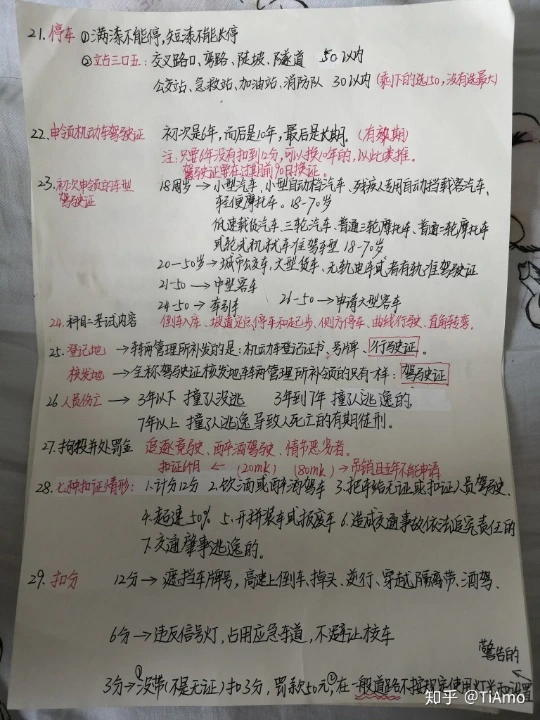 21. 停车 ①满漆不能停,短漆不能长停
②交占三口五: 交叉路口、弯路、陡坡、隧道 50以内
公交站、急救站、加油站、消防队 30以内(剩下的选150,没有选最大)
22. 申领机动车驾驶证 初次是6年,而后是10年,最后是长期。(有效期)
注:只要6年没有扣到12分,可以换10年的,以此类推。
驾驶证要在过期前90日换证。
23. 初次申领的车型 18周岁→小型汽车、小型自动档汽车、残疾人专用自动挡载客汽车、
驾驶证 轻便摩托车。18-70岁
低速载货汽车、三轮汽车、普通三轮摩托车、普通二轮摩托车
或轮式机械车准驾车型 18-70岁
20-50岁→城市公交车、大型货车、无轨电车或者有轨准驾驶证
21-50→中型客车
24-50→牵引车 26-50→申请大型客车
24. 科目二考试内容 倒车入库、坡道定点停车和起步、侧方停车、曲线行驶、直角转弯。
25. 登记地→转两管理所补发的是:机动车登记证书、号牌、行驶证。
核发地→全称驾驶证核发地转两管理所补领的只有一样:驾驶证
26 人员伤亡→3年以下 撞了没逃 3年到7年 撞了逃逸的。
7年以上 撞了逃逸导致人死亡的有期徒刑。
27. 拘役并处罚金 追逐竞驶、醉酒驾驶、情节恶劣者。
扣证6个月 ← (20mk) (80mk)→吊销且五年不能申请
28. 七种扣证情形: 1.计分12分 2.饮酒或醉酒驾车 3.把车给无证或扣证人员驾驶.
4.超速50% 5.开拼装车或报废车 6.造成交通事故依法追究责任的
7.交通肇事逃逸的。
29. 扣分 12分→遮挡车牌号,高速上倒车、掉头、逆行、穿越隔离带、酒驾.
6分→违反信号灯,占用应急车道,不避让校车
警告的
3分→①没带(不是无证)扣3分,罚款50元,②在一般道路不按规定使用灯光和设置
知乎 @TiAmo